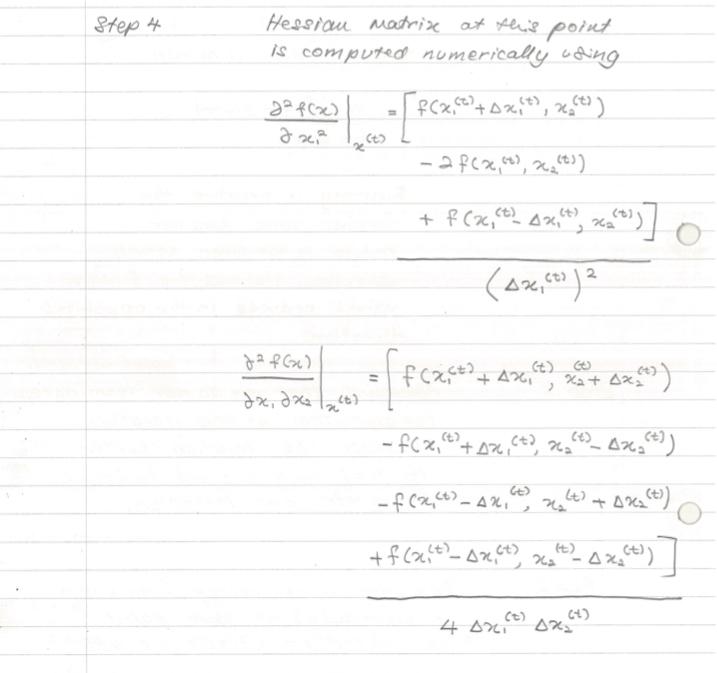 Step 4 Hessian matrix at this point
is computed numerically using
∂²f(x)/∂x₁² |ₓ₍ₜ₎ = [f(x₁^(t) + Δx₁^(t), x₂^(t))
- 2f(x₁^(t), x₂^(t))
+ f(x₁^(t) - Δx₁^(t), x₂^(t))]
(Δx₁^(t))²
∂²f(x)/∂x₁∂x₂ |ₓ₍ₜ₎ = [f(x₁^(t) + Δx₁^(t), x₂^(t) + Δx₂^(t))
- f(x₁^(t) + Δx₁^(t), x₂^(t) - Δx₂^(t))
- f(x₁^(t) - Δx₁^(t), x₂^(t) + Δx₂^(t))
+ f(x₁^(t) - Δx₁^(t), x₂^(t) - Δx₂^(t))]
4 Δx₁^(t) Δx₂^(t)